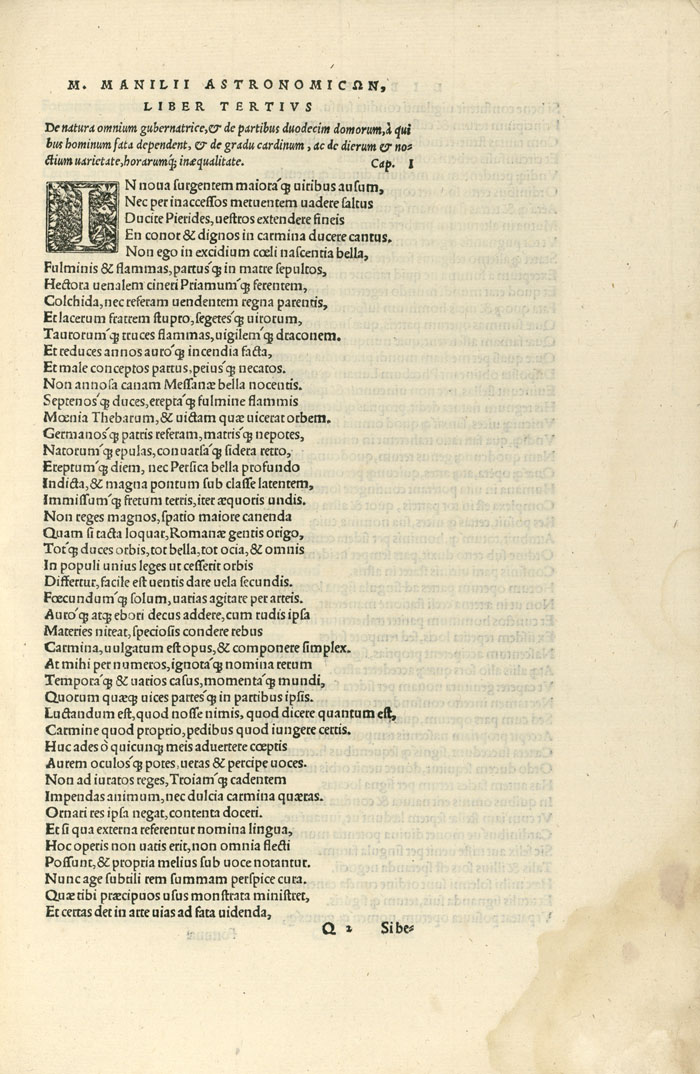 M. MANILII ASTRONOMICΩN,
LIBER TERTIVS
De natura omnium gubernatrice, & de partibus duodecim domorum, à qui
bus hominum fata dependent, & de gradu cardinum, ac de dierum & no-
ctium uarietate, horarumq; inæqualitate. Cap. I
IN noua surgentem maioráq; uiribus ausum,
Nec per inaccessos metuentem uadere saltus
Ducite Pierides, uestros extendere fineis
En conor & dignos in carmina ducere cantus.
Non ego in excidium cœli nascentia bella,
Fulminis & flammas, partus'q; in matre sepultos,
Hectora uenalem cineri Priamum'q; ferentem,
Colchida, nec referam uendentem regna parentis,
Et lacerum fratrem stupro, segetes'q; uirorum,
Taurorum'q; truces flammas, uigilem'q; draconem.
Et reduces annos auro'q; incendia facta,
Et male conceptos partus, peius'q; necatos.
Non annosa canam Messanæ bella nocentis.
Septenos'q; duces, ereptá'q; fulmine flammis
Mœnia Thebarum, & uictam quæ uicerat orbem.
Germanos'q; patris referam, matris'q; nepotes,
Natorum'q; epulas, conuersá'q; sidera retro,
Ereptum'q; diem, nec Persica bella profundo
Indicta, & magna pontum sub classe latentem,
Immissum'q; fretum terris, iter æquoris undis.
Non reges magnos, spatio maiore canenda
Quam si tacta loquar, Romanæ gentis origo,
Tot'q; duces orbis, tot bella, tot ocia, & omnis
In populi unius leges ut cesserit orbis
Differtur, facile est uentis dare uela secundis.
Fœcundum'q; solum, uarias agitare per arteis.
Auro'q; atq; ebori decus addere, cum rudis ipsa
Materies niteat, speciosis condere rebus
Carmina, uulgatum est opus, & componere simplex.
At mihi per numeros, ignotá'q; nomina rerum
Temporá'q; & uarios casus, momentá'q; mundi,
Quorum quæq; uices partes'q; in partibus ipsis.
Luctandum est, quod nosse nimis, quod dicere quantum est,
Carmine quod proprio, pedibus quod iungere certis.
Huc ades ò quicunq; meis aduertere cœptis
Aurem oculos'q; potes, ueras & percipe uoces.
Non ad iuratos reges, Troiam'q; cadentem
Impendas animum, nec dulcia carmina quæras.
Ornari res ipsa negat, contenta doceri.
Et si qua externa referentur nomina lingua,
Hoc operis non uatis erit, non omnia flecti
Possunt, & propria melius sub uoce notantur.
Nunc age subtili rem summam perspice cura.
Quæ tibi præcipuos usus monstrata ministret,
Et certas det in arte uias ad fata uidenda,
Q 2 Si be-